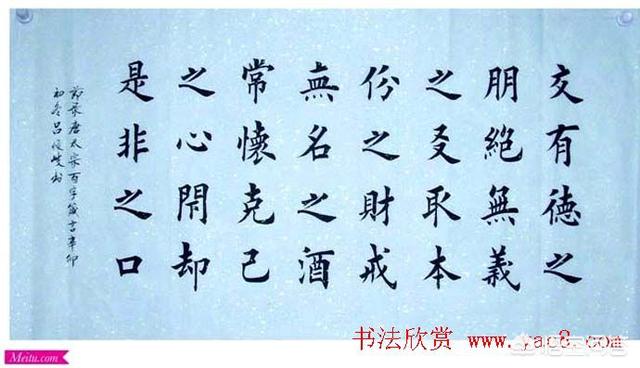 交有德之
朋絕無義
之友取本
份之財戒
無名之酒
常懷克己
之心閉却
是非之口
節录唐太宗百字箴言辛卯
初冬吕俊
书法欣赏 www.yac8.com
悟空问答
Meitu.com